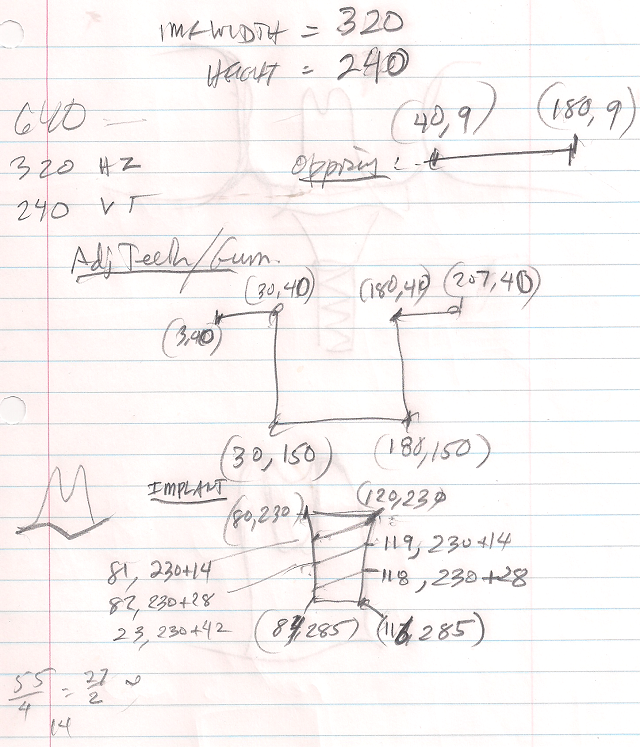 IMG WIDTH = 320
HEIGHT = 240
640 —
(40, 9)
(180, 9)
320 HZ
Opposing :
240 VT
Adj Teeth/Gum.
(30,40)
(180,40)
(207,40)
(3,40)
(30, 150)
(180,150)
IMPLANT
(120,230)
(80,230)
119, 230+14
81, 230+14
118, 230+28
82, 230+28
23, 230+42
(84,285)
(116,285)
55/4 = 27/2 ~
14